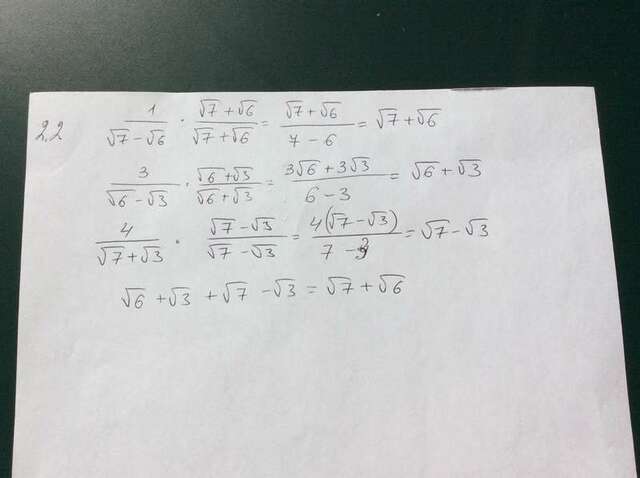 2.2 1/(√7 − √6) · (√7 + √6)/(√7 + √6) = (√7 + √6)/(7 − 6) = √7 + √6
3/(√6 − √3) · (√6 + √3)/(√6 + √3) = (3√6 + 3√3)/(6 − 3) = √6 + √3
4/(√7 + √3) · (√7 − √3)/(√7 − √3) = 4(√7 − √3)/(7 − 3) = √7 − √3
√6 + √3 + √7 − √3 = √7 + √6